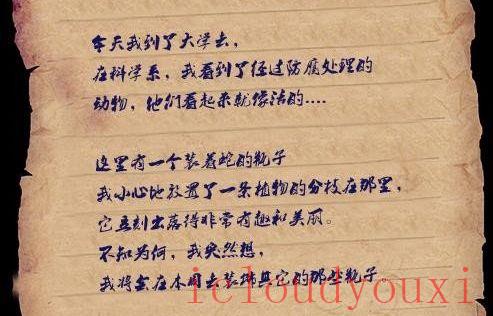 今天我到了大学去，
在科学系，我看到了经过防腐处理的
动物，他们看起来就像活的....
这里有一个装着蛇的瓶子
我小心地放置了一条植物的分枝在那里，
它立刻出落得非常有趣和美丽。
不知为何，我突然想，
我将会在本周去装饰其它的那些瓶子。
icloudyouxi